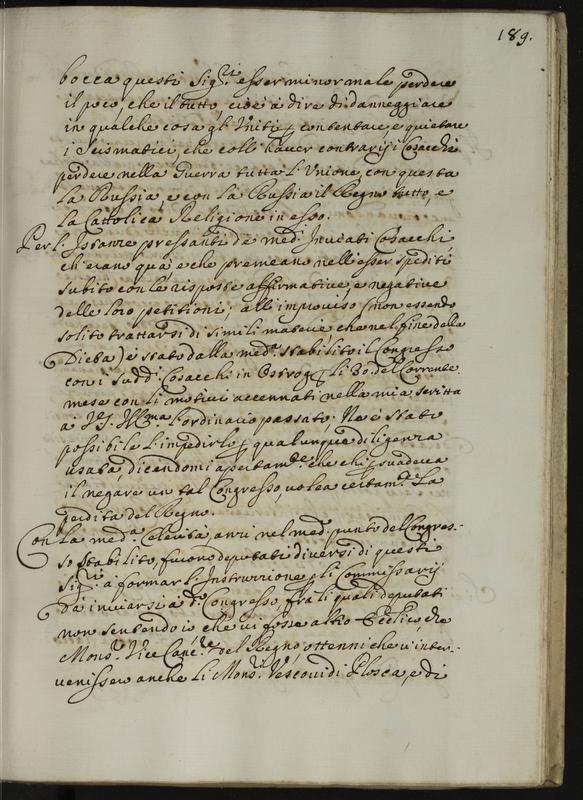 189.
bocca questi Sig.ri esser minor male perdere
il poco, che il tutto, cioè a dire di danneggiare
in qualche cosa gl'Uniti p contentare, e quietare
i Scismatici, che coll'haver contrarij i Cosacchi
perdere nella Guerra tutta l'Unione, con questa
la Russia, e con la Russia il Regno tutto, e
la Cattolica Religione in esso.
Per l'Istanze pressanti de med.i Inviati Cosacchi
ch'erano quà, e che premeano nell'esser spediti
subito con le risposte affirmative, e negative
delle loro petitioni; all'improviso (non essendo
solito trattarsi di simili materie che nel fine della
Dieta) è stato dalla med.a stabilito il Congresso
con i Sudd.i Cosacchi in Ostrog p li 30. del Corrente
mese con li motivi accennati nella mia scritta
à V.S. Ill.ma l'ordinario passato; Ne è stato
possibile l'impedirlo p qualunque diligenza
usata, dicendomi apertam.te che chi suadeva
il negare un tal Congresso, volea certam.te la
perdita del Regno.
Con la med.a Celerità, anzi nel med.o punto del Congres-
so stabilito, furono deputati diversi di questi
Sig.ri a formar l'Instruzzione p li Commissarij
da inviarsi à d.o Congresso, frà li quali deputati
non sentendo io che vi fosse altro Eccl.ico che
Mons.r Vice Canc.re del Regno, ottenni che v'inter-
venissero anche li Mons.ri Vescovi di Plosca, e di